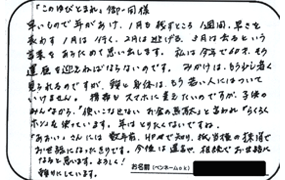 「このゆびとまれ」御一同様
早いもので年があけ、1月も残すところ1週間。早さを
表わす1月は行く、2月は逃げる、3月は去るという
言葉をあらためて思い出します。私は今年で60才、もう
還暦を迎えねばならないのです。みかけは、もう少し若く
見られるのですが、頭と身体は、もう若い人にはついて
いけません。携帯もスマホに変えたいのですが、子供の
みんながら、「使いこなせない お金の無駄」と言われ「らくらく
ホン」を使ています。年はとりたくないですね。
「あおい」さんには数年前、HPで知り、抵当権の抹消で
お世話になったきりです。今後は遺言や、相続でお世話に
なると思います。よろしく!
頼りにしています。
お名前(ペンネームok)